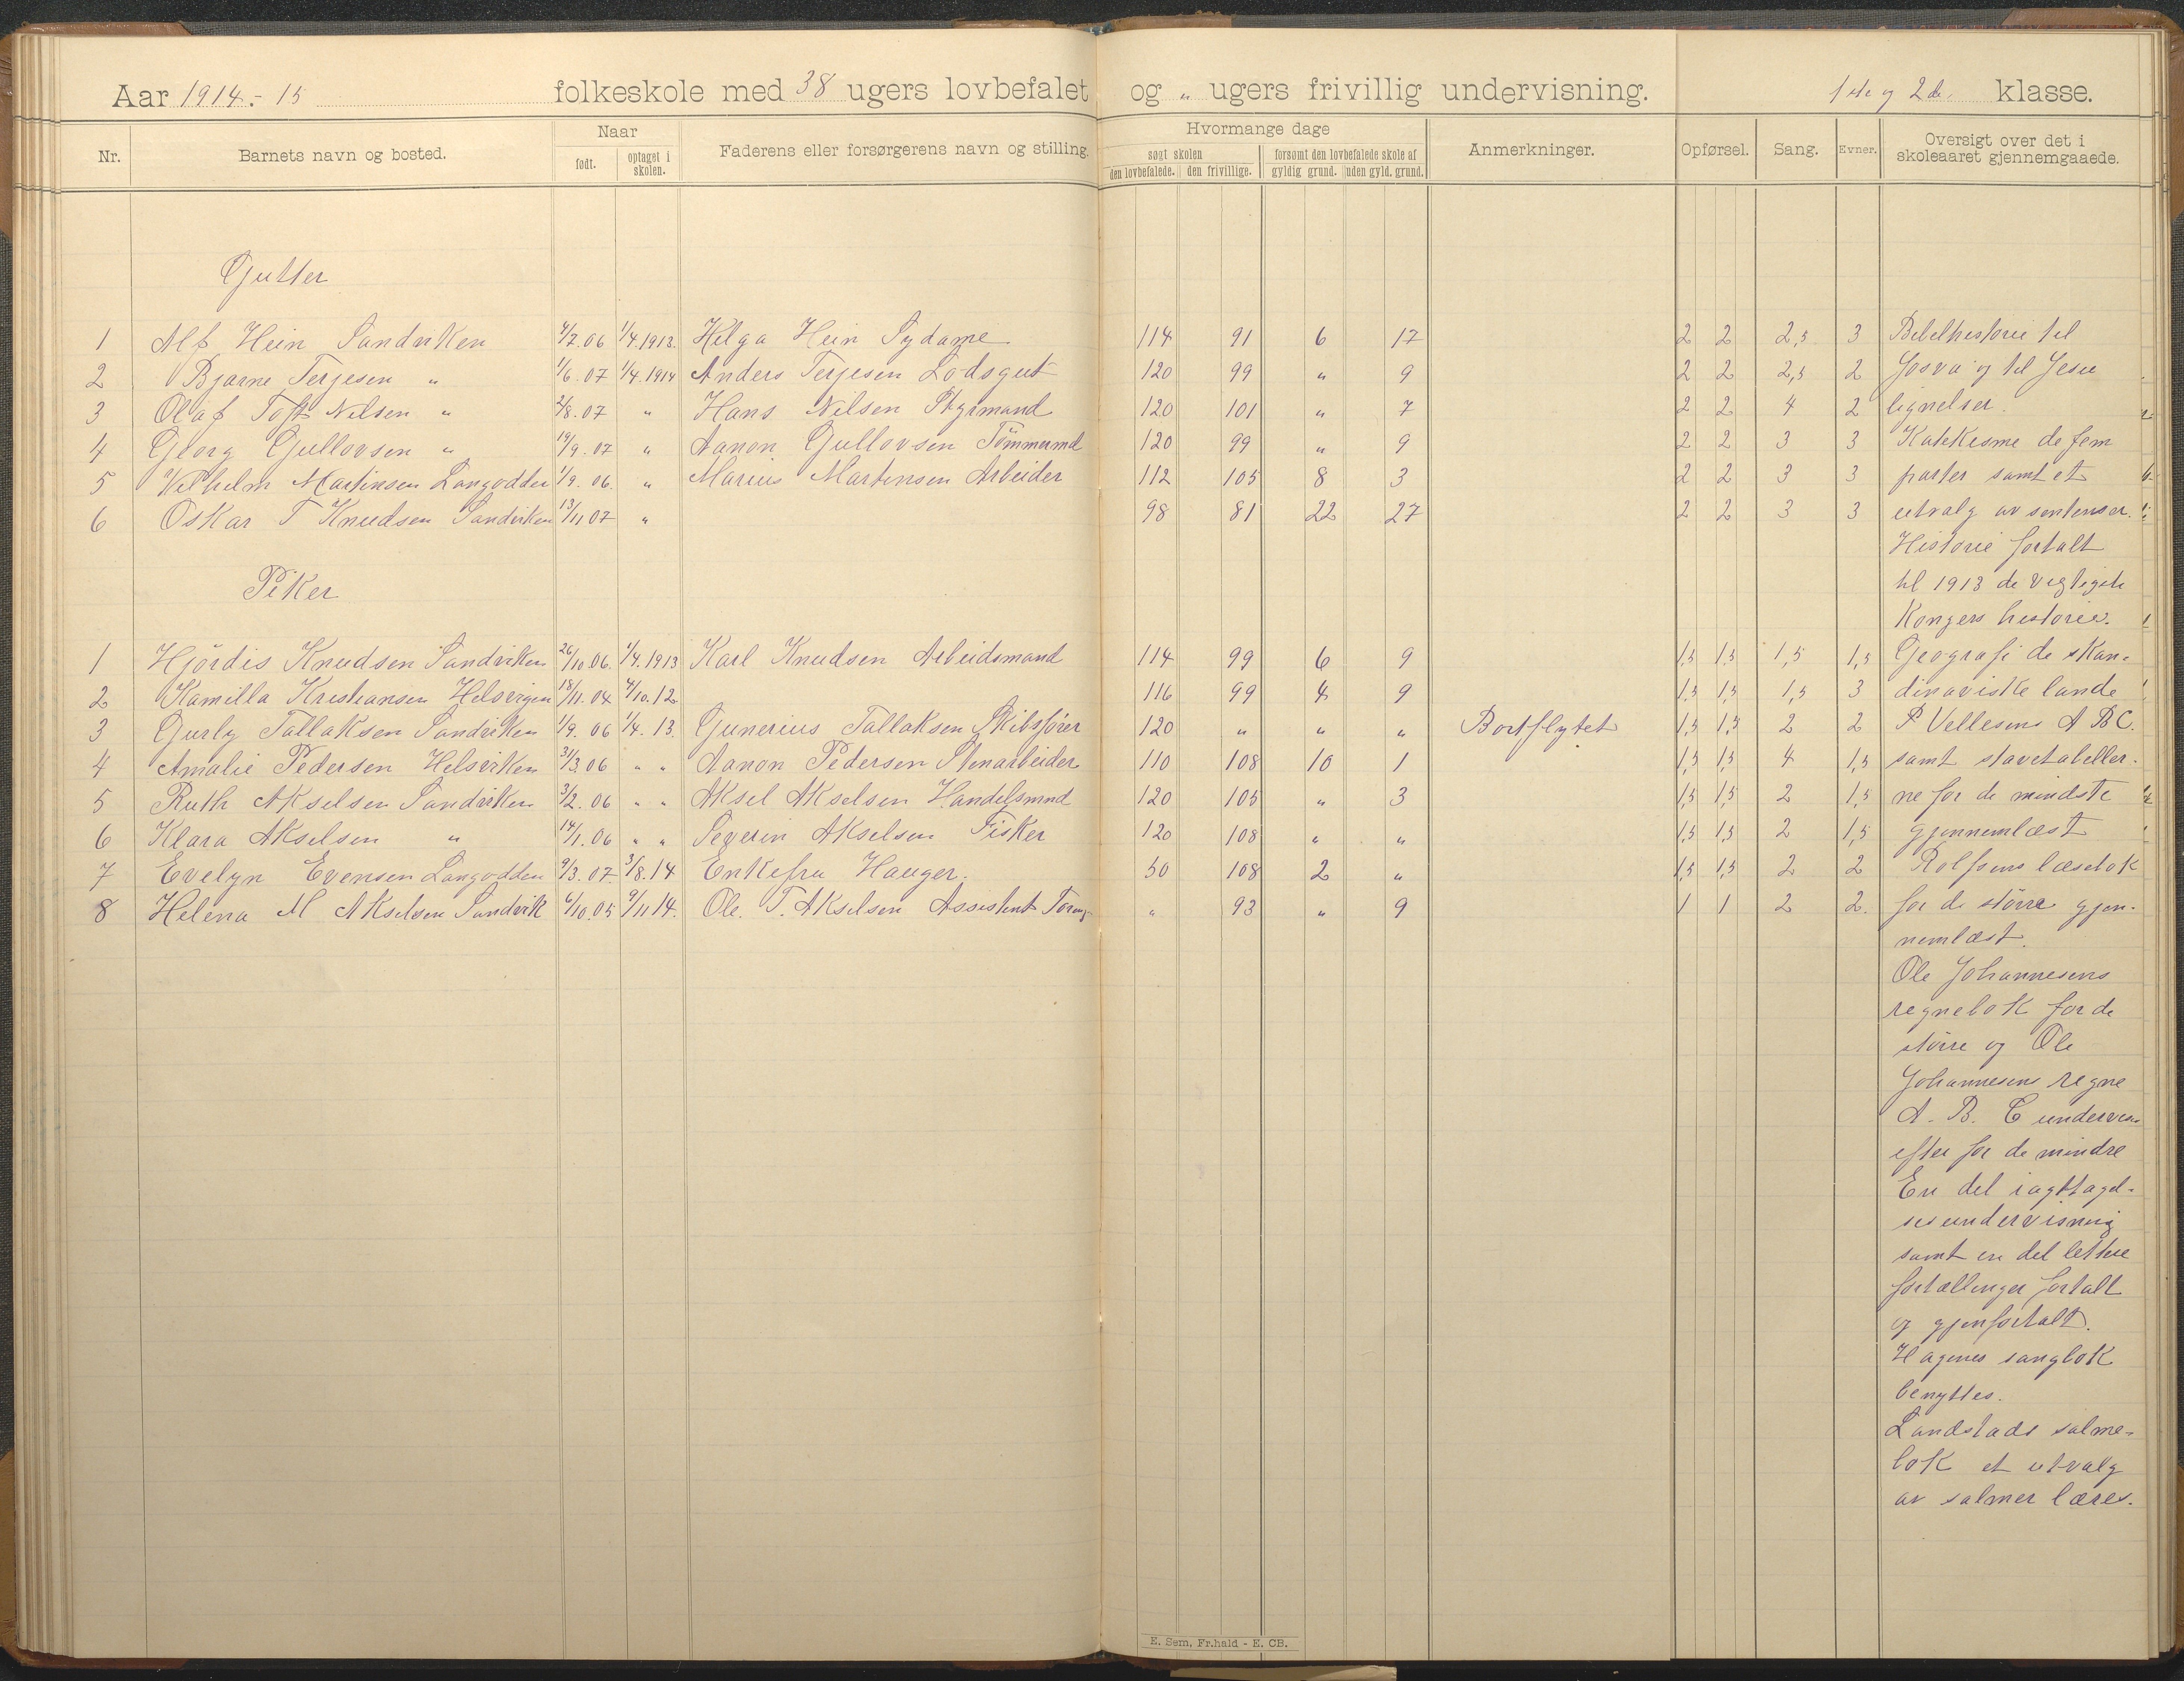 Aar 1914.- 15 folkeskole med 38 ugers lovbefalet og „ ugers frivillig undervisning. 1ste og 2de. klasse.
Nr. Barnets navn og bosted. Naar født. optaget i skolen. Faderens eller forsørgerens navn og stilling. Hvormange dage søgt skolen den lovbefalede. den frivillige. forsømt den lovbefalede skole af gyldig grund. uden gyld. grund. Anmerkninger. Opførsel. Sang. Evner. Oversigt over det i skoleaaret gjennemgaaede.
Gutter
1 Alf Hein Sandviken 4/7.06 1/4.1913. Helga Hein Sydame 114 91 6 17 2 2 2,5 3 Bibelhistorie til
2 Bjarne Terjesen „ 1/6.07 1/4.1914 Anders Terjesen Lodsgut 120 99 „ 9 2 2 2,5 2 Josva og til Jesu
3 Olaf Toft Nilsen „ 2/8.07 „ Hans Nilsen Styrmand 120 101 „ 7 2 2 4 2 lignelser.
4 Georg Gullovsen „ 19/9.07 „ Aanon Gullovsen Tømmermd 120 99 „ 9 2 2 3 3 Katekisme de fem
5 Vilhelm Martinsen Langodden 1/9.06. „ Marius Martinsen Arbeider 112 105 8 3 2 2 3 3 parter samt et
6 Oskar T Knudsen Sandviken 13/11 07 „ 98 81 22 27 2 2 3 3 utvalg av sentenser.
Historie fortalt
til 1913 de vigtigste
Piker
Kongers historie.
1 Hjördis Knudsen Sandviken 26/10.06. 1/4.1913 Karl Knudsen Arbeidsmand 114 99 6 9 1,5 1,5 1,5 1,5 Geografi de skan-
2 Kamilla Kristiansen Helsvigen 18/11.04 4/10.12. 116 99 4 9 1,5 1,5 1,5 3 dinaviske lande
3 Gurly Tallaksen Sandviken 1/9.06 1/4.13. Gunerius Tallaksen Skibsfører 120 „ „ „ Bortflytet 1,5 1,5 2 2 P Vellesens A B C.
4 Amalie Pedersen Helsviken 31/3.06 „ „ Aanon Pedersen Stenarbeider 110 108 10 1 1,5 1,5 4 1,5 samt stavetabeller-
5 Ruth Akselsen Sandviken 3/2.06 „ „ Aksel Akselsen Handelsmnd 120 105 „ 3 1,5 1,5 2 1,5 ne for de mindste
6 Klara Akselsen „ 14/1.06 „ „ Severin Akselsen Fisker 120 108 „ „ 1,5 1,5 2 1,5 gjennemlæst
7 Evelyn Evensen Langodden 9/3.07. 3/8.14 Enkefru Hauger. 50 108 2 „ 1,5 1,5 2 2 Rolfsens læsebok
8 Helena M Akselsen Sandvik 6/10.05 9/11 14. Ole. T. Akselsen Assistent „ 93 „ 9 1 1 2 2. for de större gjen-
nemlæst.
Ole Johannesens
regnebok for de
större og Ole
Johannesens regne
A. B. C undervist
efter for de mindre
En del iagttagel-
sesundervisning
samt en del lettere
fortællinger fortalt
og gjenfortalt.
Hagenes sangbok
benyttes.
Landstads salme-
bok et utvalg
av salmer læres.
E. Sem, Fr.hald - E. CB.